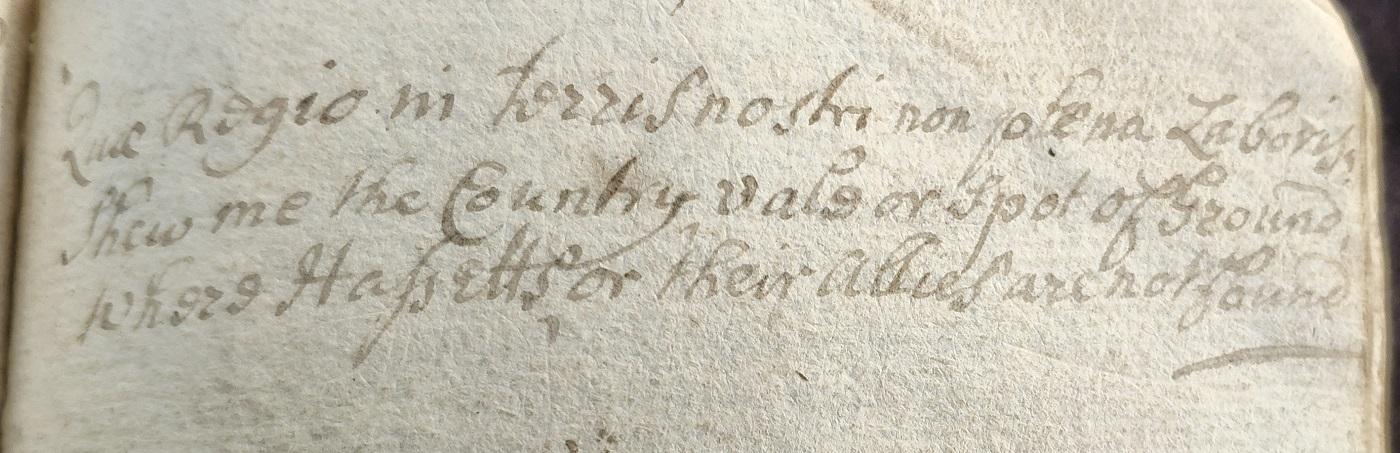 Quæ Regio in terris nostri non plena Laboris.
Shew me the Country vale or Spot of Ground,
where Hassetts or their Allies are not found